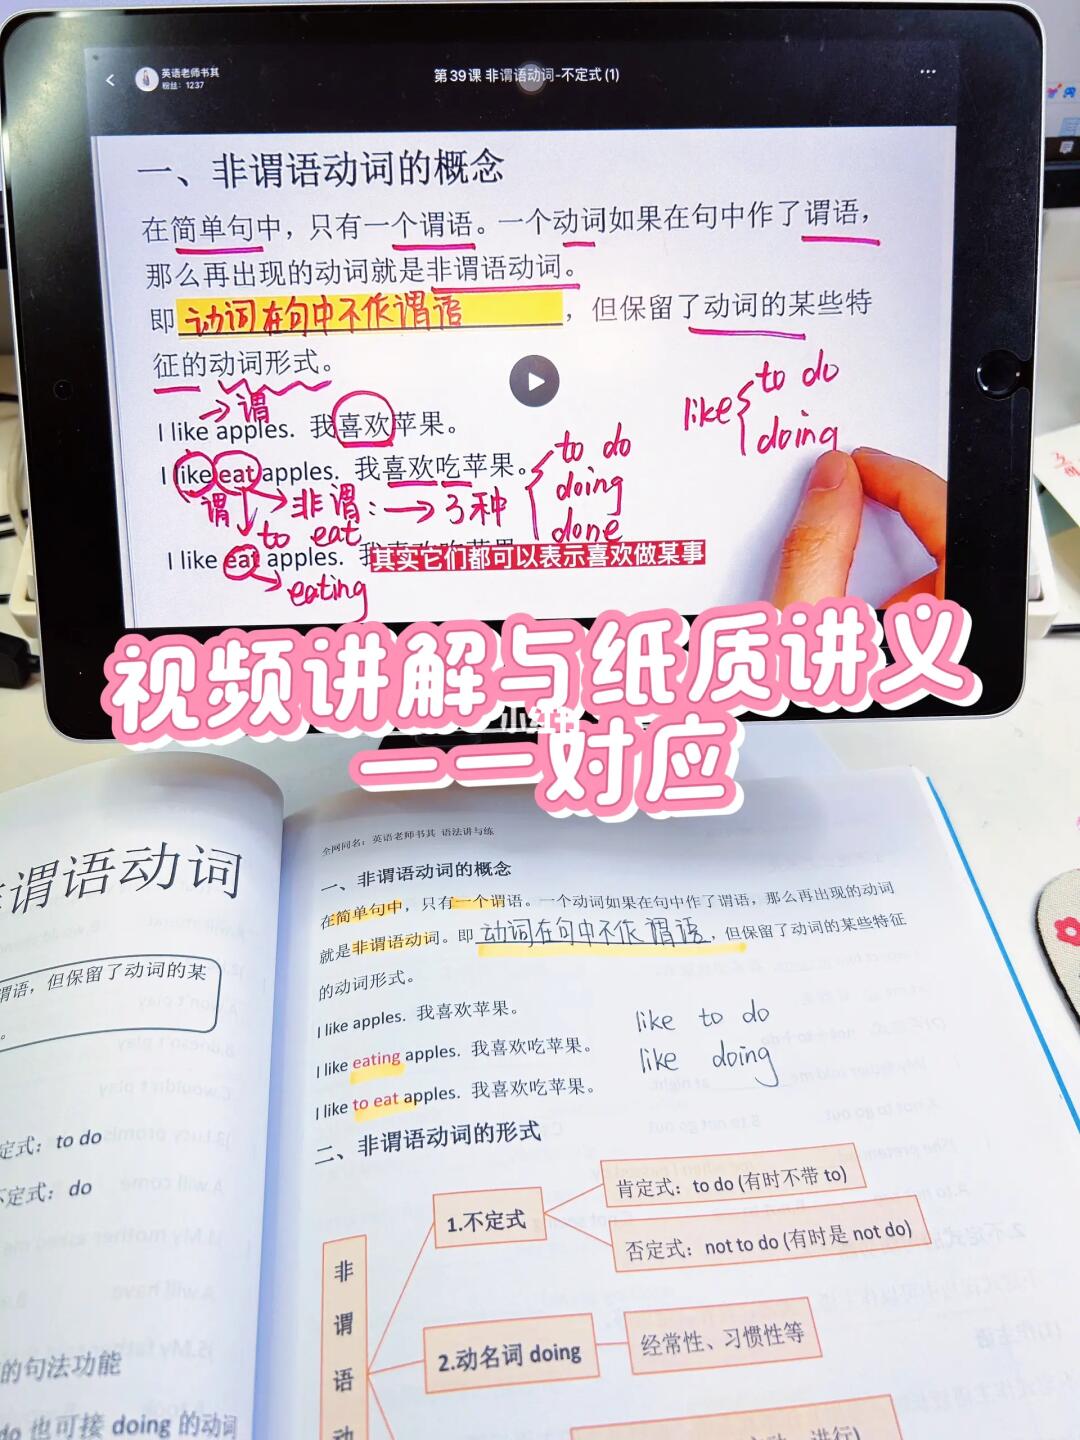 英语老师书其
粉丝：1237
第39课 非谓语动词-不定式 (1)
一、非谓语动词的概念
在简单句中，只有一个谓语。一个动词如果在句中作了谓语，
那么再出现的动词就是非谓语动词。
即 动词在句中不作谓语 ，但保留了动词的某些特
征的动词形式。
→谓
I like apples. 我喜欢苹果。
I like eat apples. 我喜欢吃苹果。
谓 → 非谓：→3种
to do
doing
done
to eat
I like eat apples.
eating
like
to do
doing
其实它们都可以表示喜欢做某事
视频讲解与纸质讲义
小红书
一一对应
谓语动词
谓语，但保留了动词的某
定式：to do
定式：do
的句法功能
do 也可接 doing 的动词
全网同名：英语老师书其 语法讲与练
一、非谓语动词的概念
在简单句中，只有一个谓语。一个动词如果在句中作了谓语，那么再出现的动词
就是非谓语动词。即 动词在句中不作谓语 ，但保留了动词的某些特征
的动词形式。
I like apples. 我喜欢苹果。
I like eating apples. 我喜欢吃苹果。
I like to eat apples. 我喜欢吃苹果。
like to do
like doing
二、非谓语动词的形式
非谓语动
1.不定式
肯定式：to do (有时不带 to)
否定式：not to do (有时是 not do)
2.动名词 doing
经常性、习惯性等